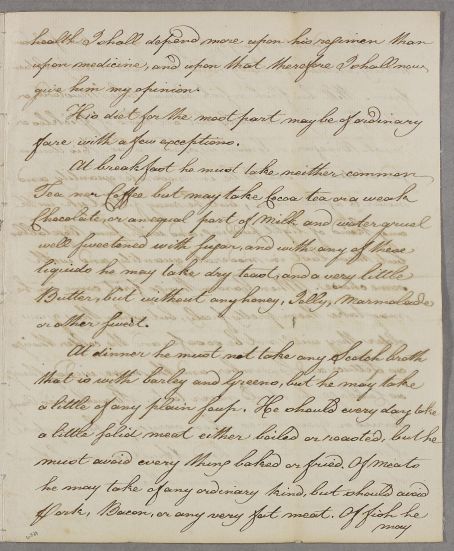 health I shall depend more upon his regimen than
upon medicine, and upon that therefore I shall now
give him my opinion.
His diet for the most part may be of ordinary
fare with a few exceptions.
At breakfast he must take neither common
Tea nor Coffee but may take Cocoa tea or a weak
Chocolate, or an equal part of Milk and water gruel
well sweetened with sugar, and with any of these
liquids he may take dry toast, and a very little
Butter, but without any honey, Jelly, Marmalade
or other sweet.
At dinner he must not take any Scotch broth
that is with barley and Greens, but he may take
a little of any plain soup. He should every day take
a little solid meat either boiled or roasted, but he
must avoid every thing baked or fried. Of meats
he may take of any ordinary kind, but should avoid
Pork, Bacon, or any very fat meat. Of fish he
may